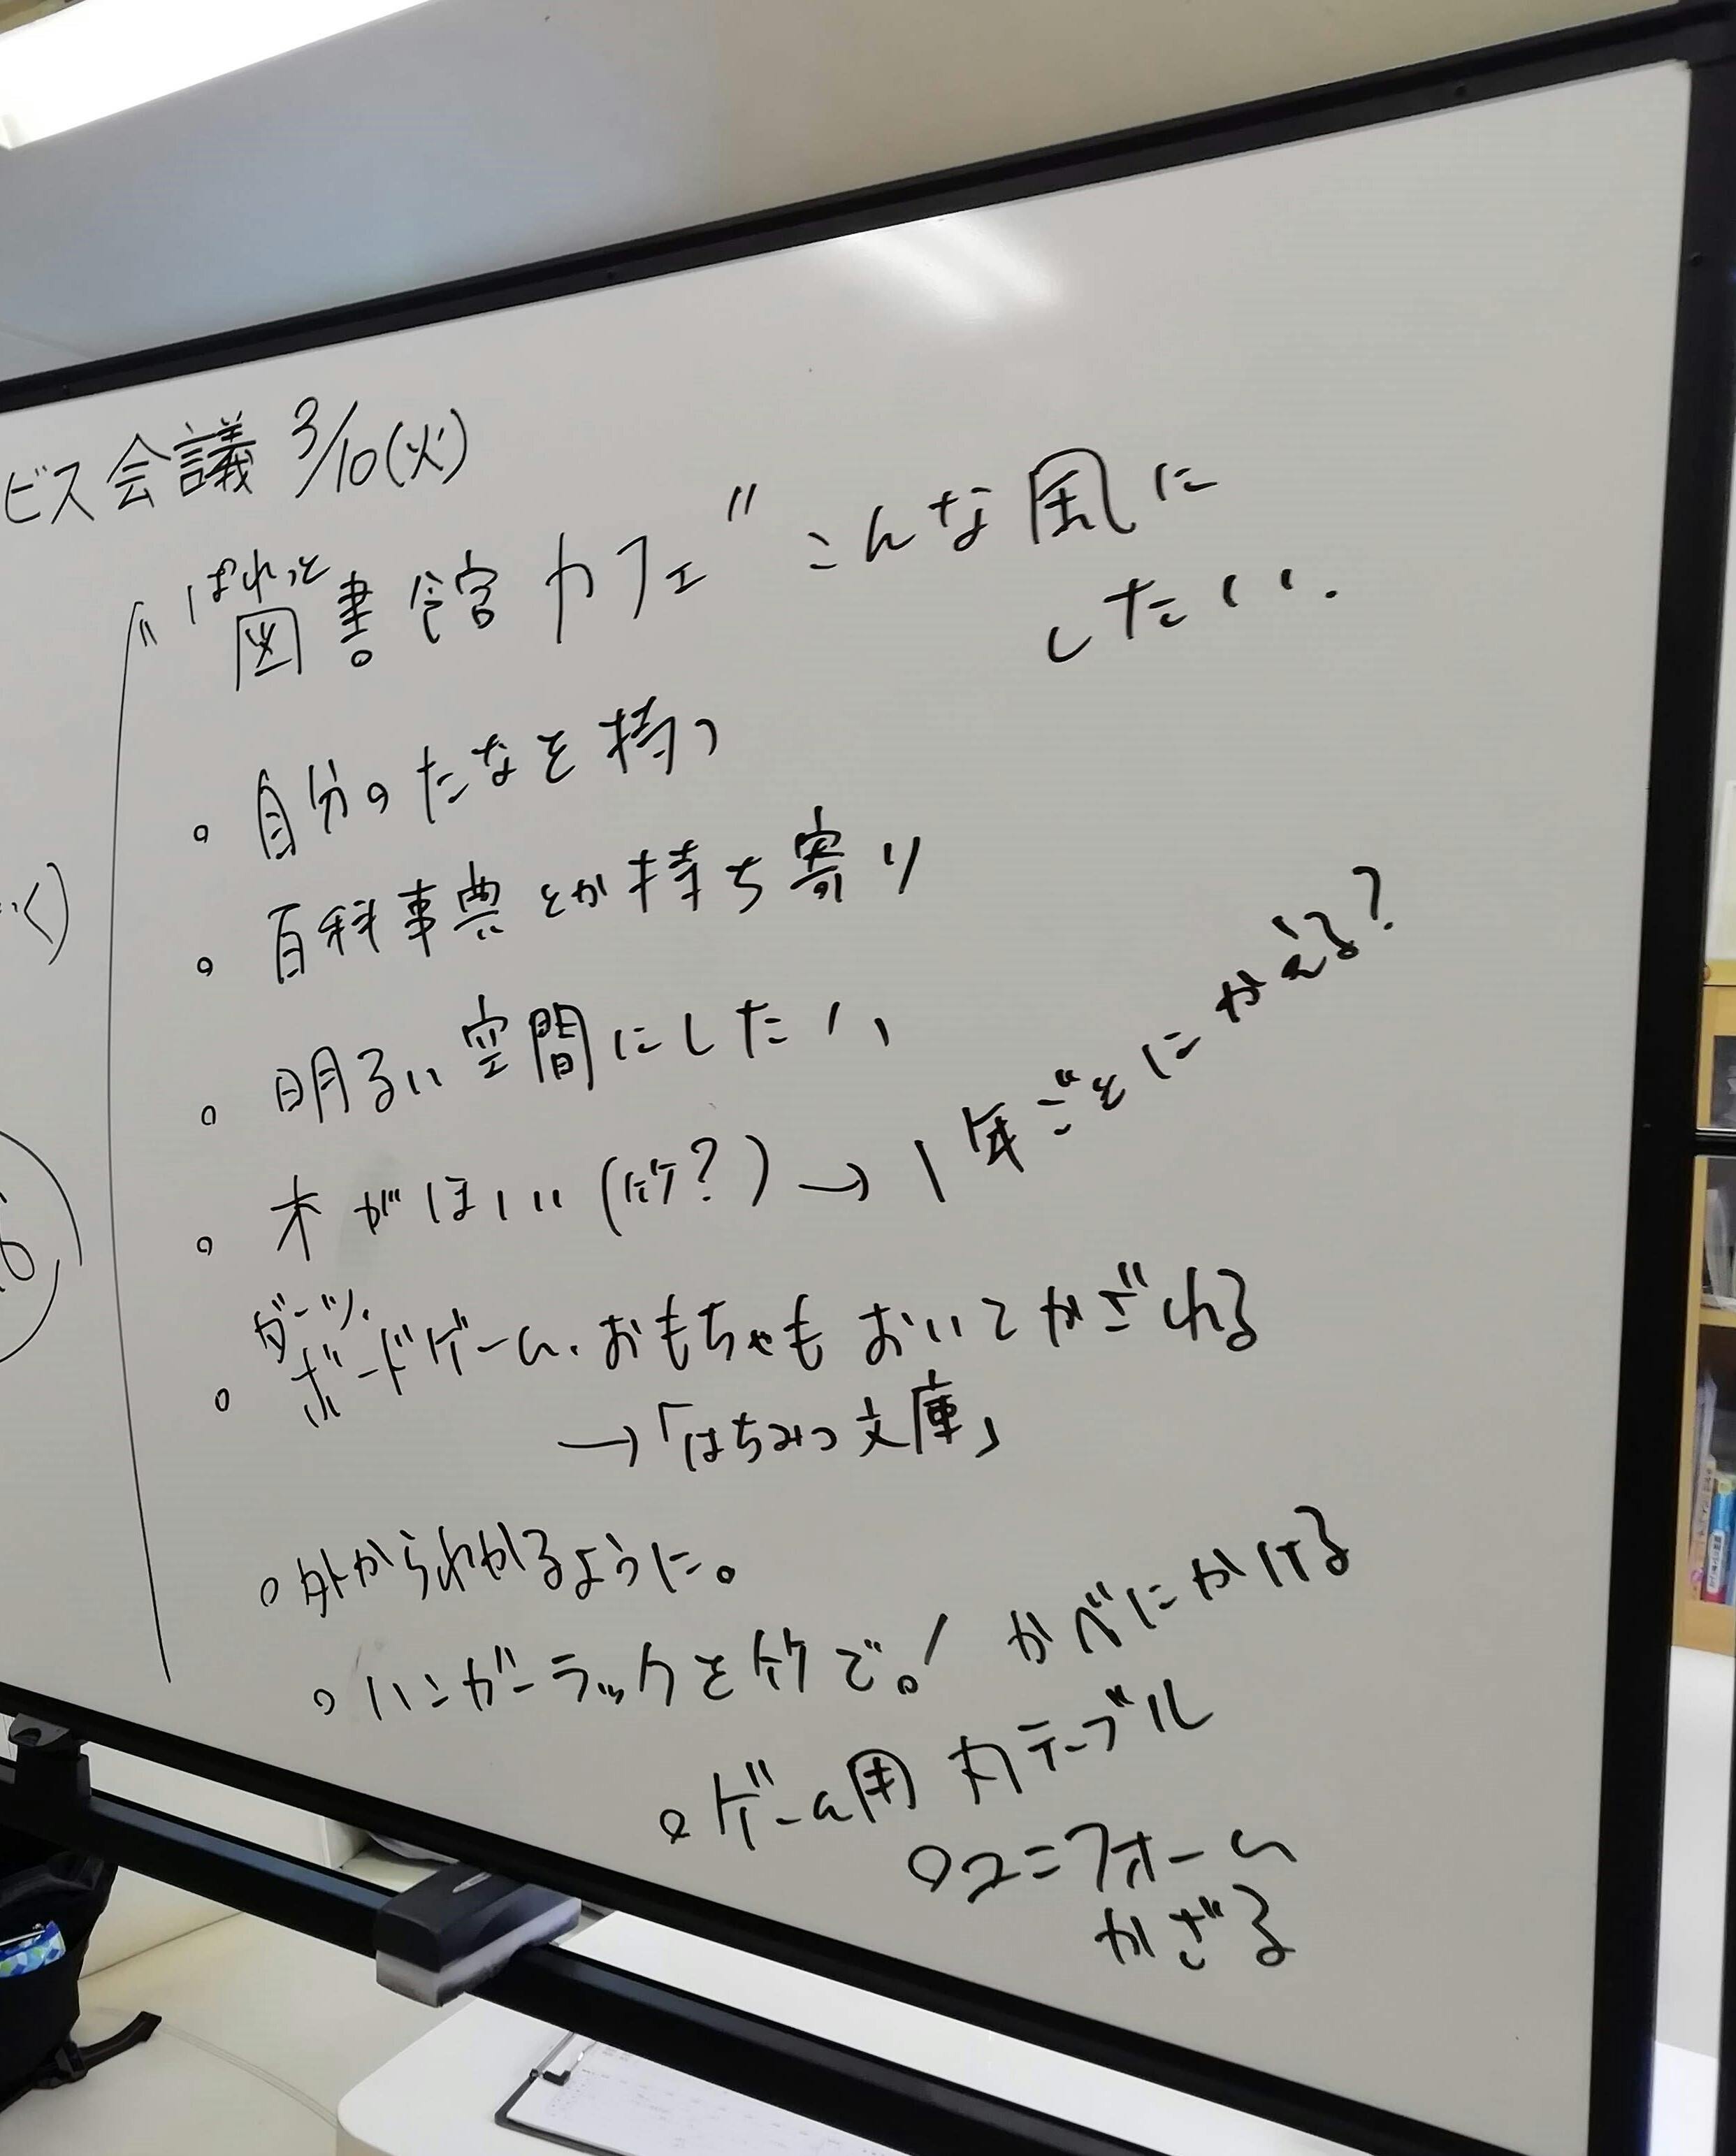 ビス会議 3/10(火)
"ぱれっと図書館カフェ" こんな風に
したい.
。自分のたなを持つ
。百科事典とか持ち寄り
。明るい空間にしたい
。木がほしい(竹?)→1年ごとにかえる?
ダーツ.
。ボードゲーム.おもちゃもおいてかざれる
→「はちみつ文庫」
。外からわかるように。
。ハンガーラックを竹で。! かべにかける
。ゲーム用 丸テーブル
。ユニフォーム
かざる
く)
6